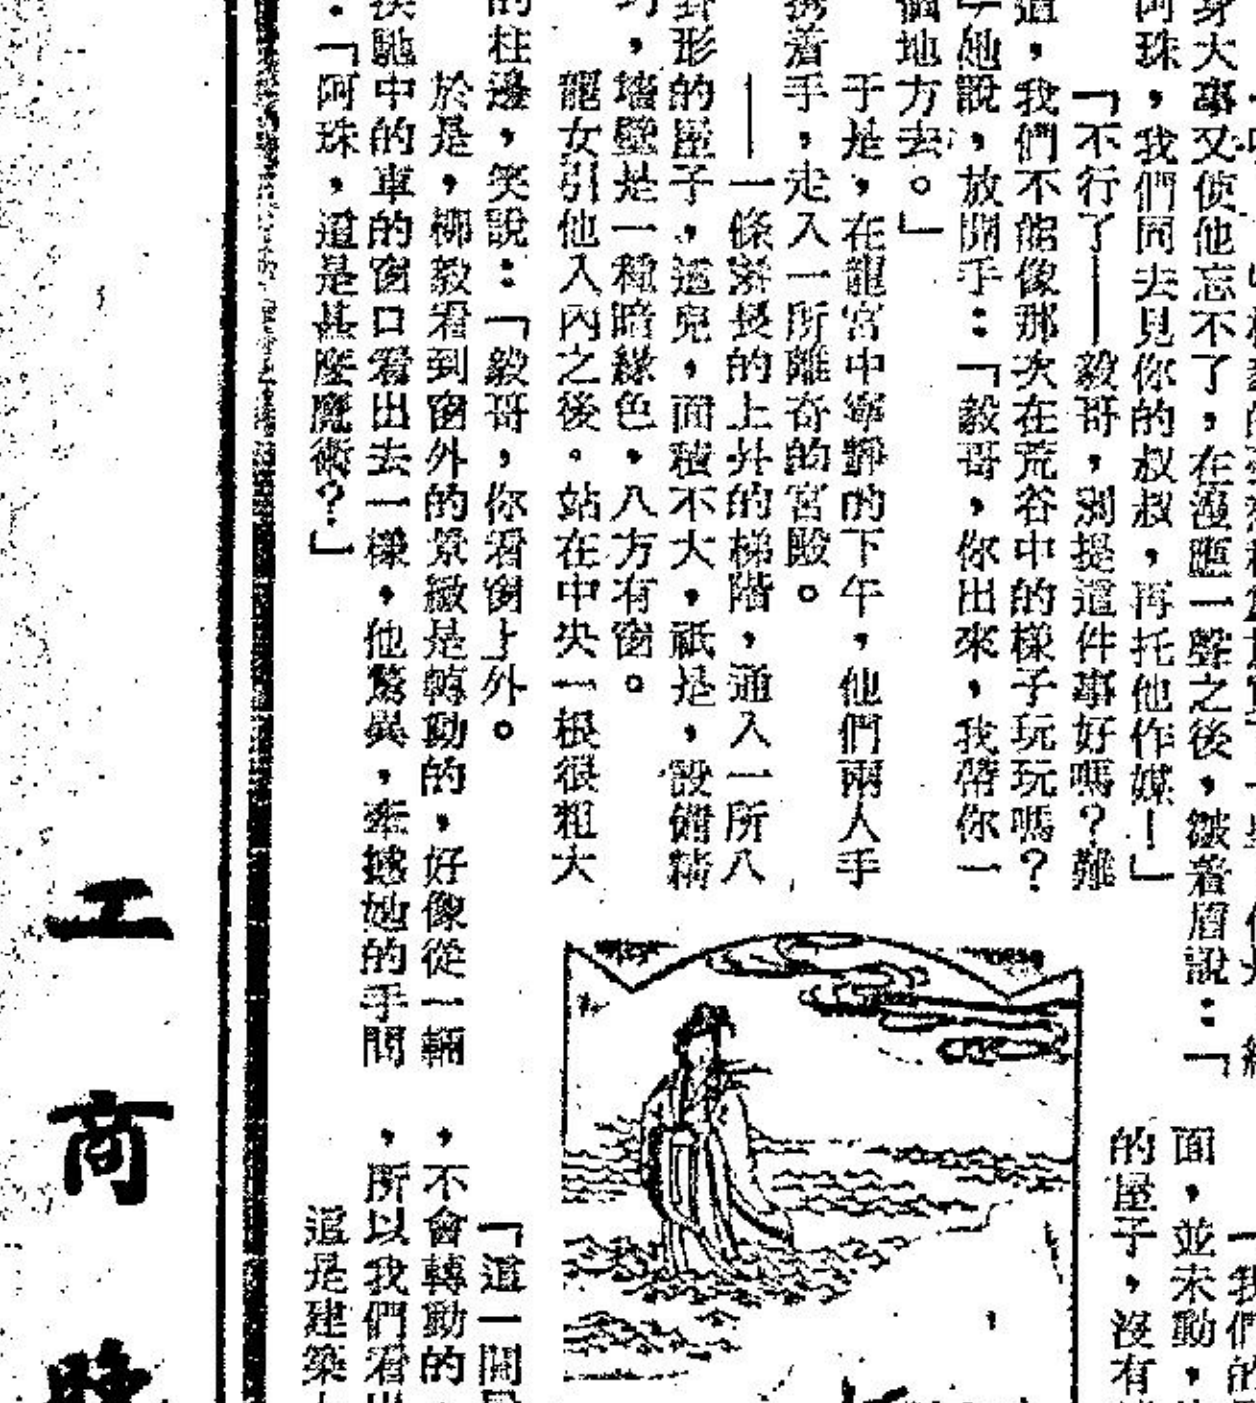 身大事又使他忘不了，在漫應一聲之後，皺着眉說：「
阿珠，我們同去見你的叔叔，再托他作媒！」
「不行了——毅哥，別提這件事好嗎？難
道，我們不能像那次在荒谷中的樣子玩玩嗎？
她說，放開手：「毅哥，你出來，我帶你一
個地方去。」
于是，在龍宮中寧靜的下午，他們兩人手
携着手，走入一所離奇的宮殿。
——一條漫長的上升的梯階，通入一所八
卦形的屋子，這兒，面積不大，祇是，設備精
巧，墻壁是一種暗綠色，八方有窗。
龍女引他入內之後。站在中央一根很粗大
的柱邊，笑說：「毅哥，你看窗上外。
於是，柳毅看到窗外的景緻是轉動的，好像從一輛
馳中的車的窗口看出去一樣，他驚異，牽撼她的手問
：「阿珠，這是甚麼魔術？」
「我們的
面，並未動，
的屋子，沒有
「這一間
，不會轉動的
，所以我們看出
這是建築
工商